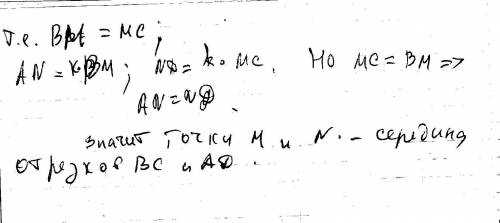 т.е. BM = MC ;
AN = k·BM ; ND = k·MC . Но MC = BM =>
AN = ND .
значит точки M и N - середина
отрезков BC и AD .